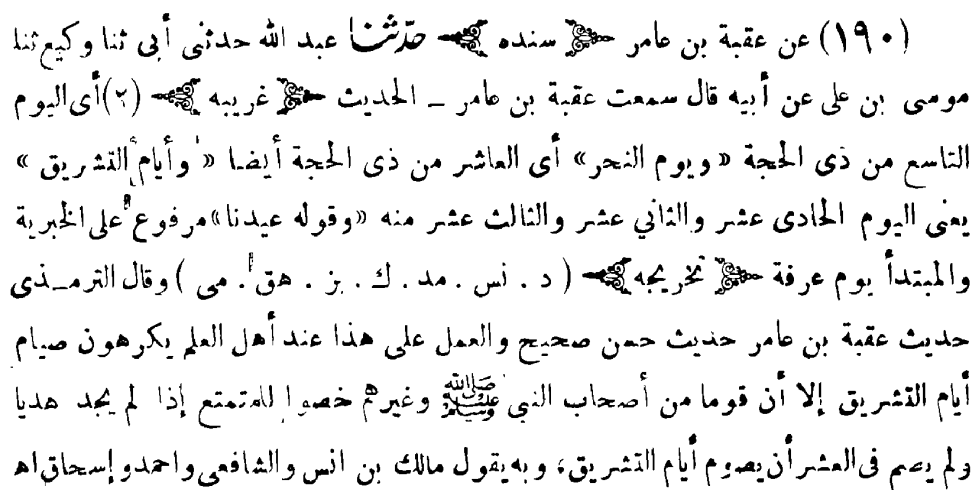 (١٩٠) عن عقبة بن عامر ﴿ سنده ﴾ حدّثنا عبد الله حدثنى أبى ثنا وكيع ثنا
موسى بن على عن أبيه قال سمعت عقبة بن عامر ــ الحديث ﴿ غريبه ﴾ (٢) أى اليوم
التاسع من ذى الحجة « ويوم النحر» أى العاشر من ذى الحجة أيضا « وأيام التشريق »
يعنى اليوم الحادى عشر والثاني عشر والثالث عشر منه «وقوله عيدنا» مرفوع على الخبرية
والمبتدأ يوم عرفة ﴿ تخريجه ﴾ ( د . نس . مد . ك . بز . هق . مى ) وقال الترمـذى
حديث عقبة بن عامر حديث حسن صحيح والعمل على هذا عند أهل العلم يكرهون صيام
أيام التشريق إلا أن قوما من أصحاب النبي ﷺ وغيرهم خصوا للمتمتع إذا لم يجد هديا
ولم يصم فى العشر أن يصوم أيام التشريق، وبه يقول مالك بن انس والشافعى واحمد وإسحاق اھ